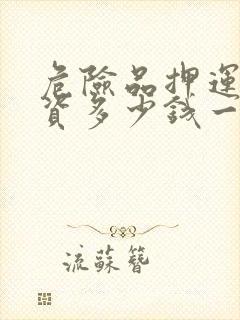 危險品押運
貨多少錢一
流蘇簪